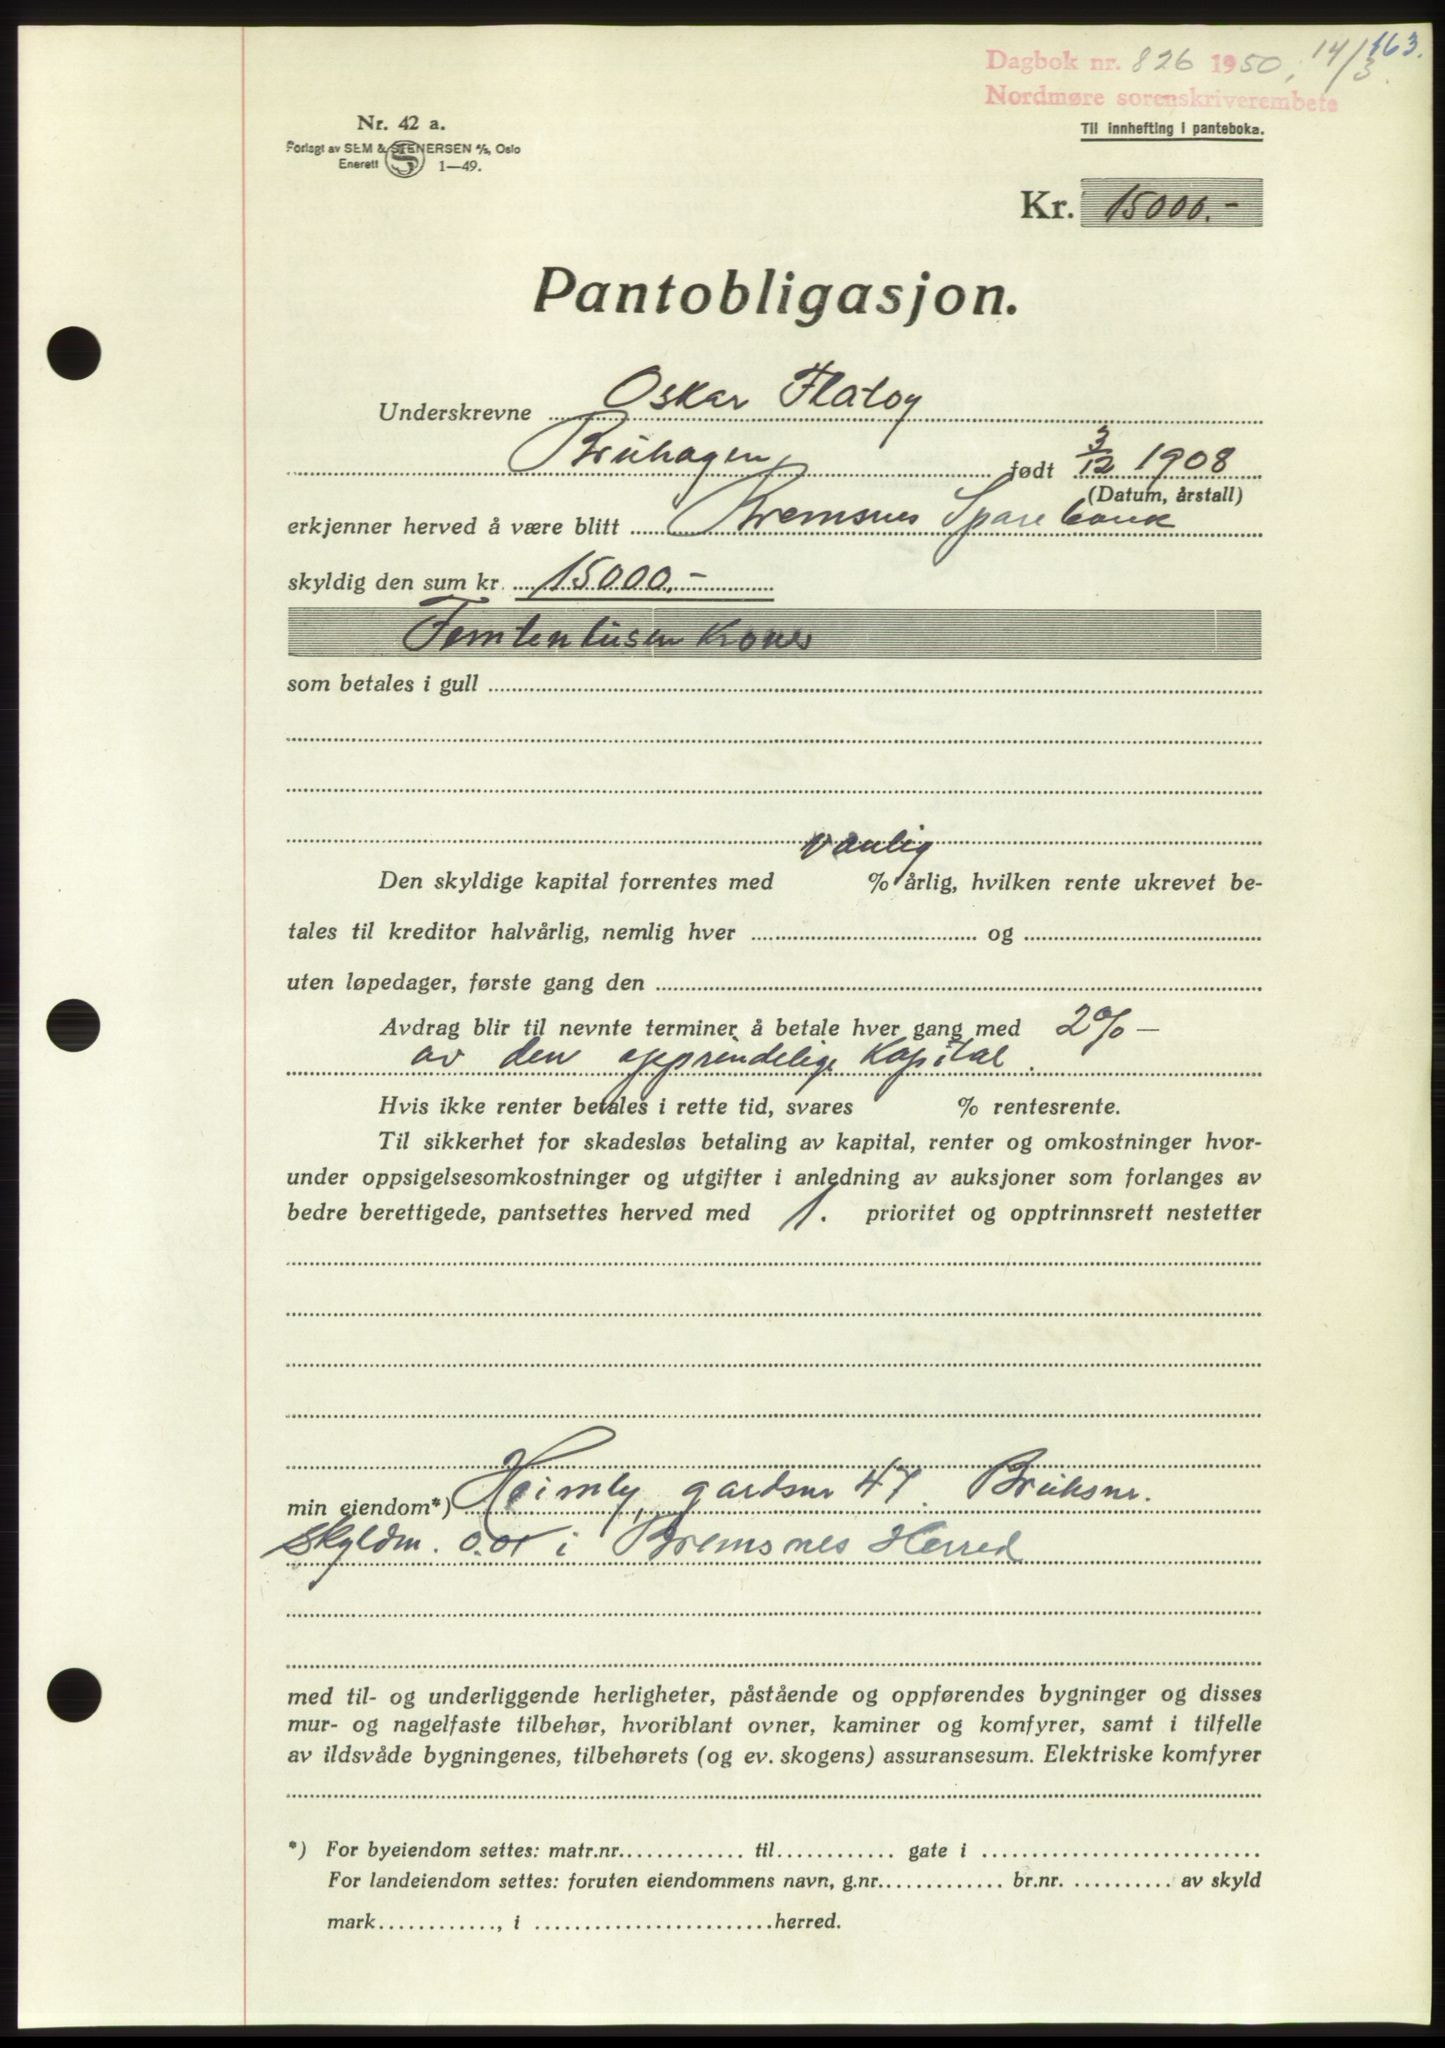 163.
Dagbok nr. 826 1950, 14/3.
Nordmøre sorenskriverembete
Nr. 42 a.
Forlagt av SEM & STENERSEN A/S, Oslo
Enerett S 1—49.
Til innhefting i panteboka.
Kr. 15000.-
Pantobligasjon.
Underskrevne Oskar Flatøy
Bruhagen, født 3/12 1908
(Datum, årstall)
erkjenner herved å være blitt Bremsnes Sparebank
skyldig den sum kr. 15000.-
Femtentusen Kroner
som betales i gull
vanlig
Den skyldige kapital forrentes med % årlig, hvilken rente ukrevet be-
tales til kreditor halvårlig, nemlig hver og
uten løpedager, første gang den
Avdrag blir til nevnte terminer å betale hver gang med 2% —
av den opprindelige Kapital.
Hvis ikke renter betales i rette tid, svares % rentesrente.
Til sikkerhet for skadesløs betaling av kapital, renter og omkostninger hvor-
under oppsigelsesomkostninger og utgifter i anledning av auksjoner som forlanges av
bedre berettigede, pantsettes herved med 1. prioritet og opptrinnsrett nestetter
min eiendom*) Heimly, gardsnr 47. Bruksnr.
Skyldm. 0.01 i Bremsnes Herred
med til- og underliggende herligheter, påstående og oppførendes bygninger og disses
mur- og nagelfaste tilbehør, hvoriblant ovner, kaminer og komfyrer, samt i tilfelle
av ildsvåde bygningenes, tilbehørets (og ev. skogens) assuransesum. Elektriske komfyrer
*) For byeiendom settes: matr.nr. til gate i
For landeiendom settes: foruten eiendommens navn, g.nr. br.nr. av skyld
mark , i herred.